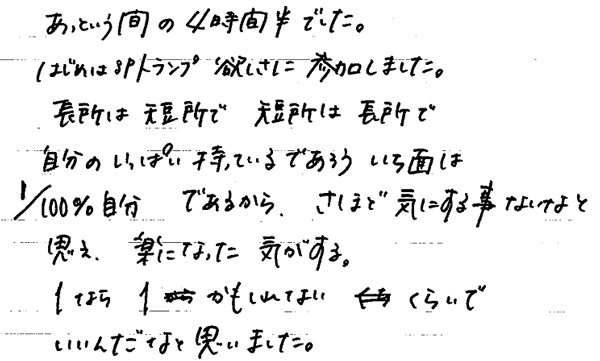 あっという間の4時間半でした。
はじめはSPトランプ欲しさに参加しました。
長所は短所で 短所は長所で
自分のいっぱい持っているであろういち面は
1/100%自分 であるから、さほど気にする事ないなと
思え、楽になった気がする。
1なら1 かもしれない くらいで
いいんだなと思いました。